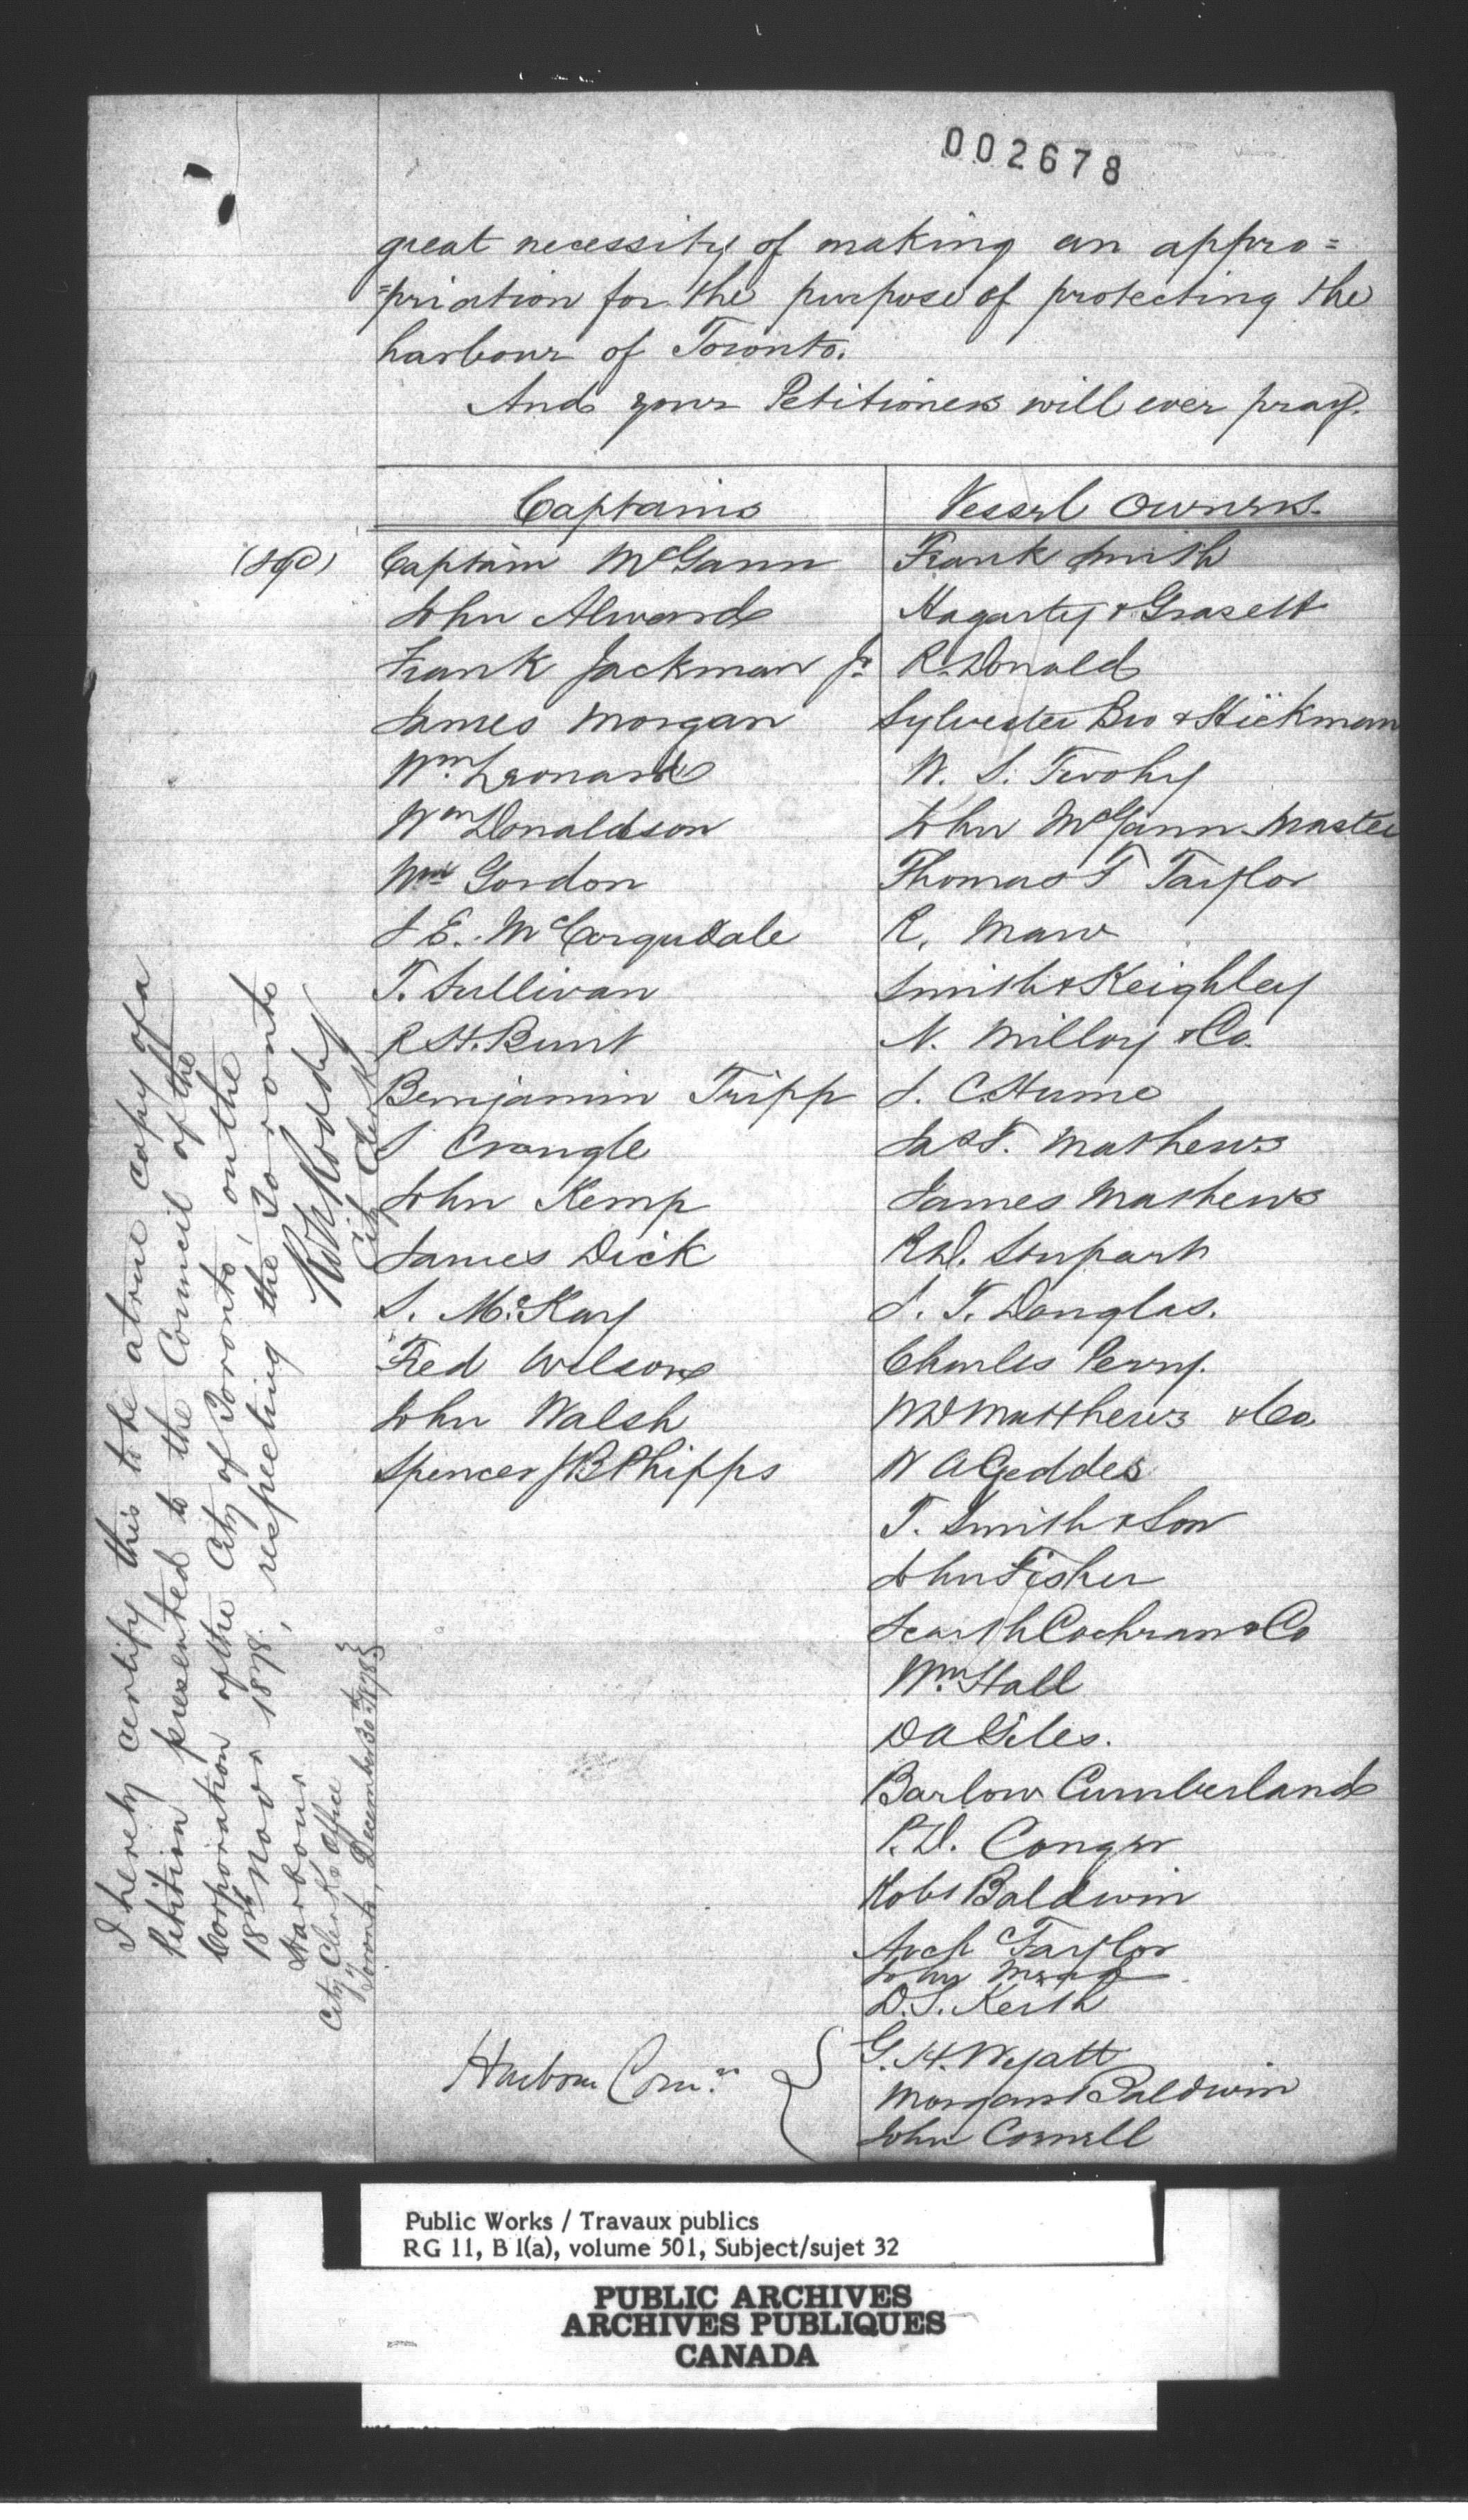 002678
great necessity of making an appro=
=priation for the purpose of protecting the
harbour of Toronto.
And your Petitioners will ever pray.
Captains
Vessel Owners.
(sgd)
Captain McGann
John Alward
Frank Jackman Jr
James Morgan
Wm. Leonard
Wm Donaldson
Wm Gordon
J E. McCorqudale
T. Sullivan
R H. Bunt
Benjamin Tripp
S Crangle
John Kemp
James Dick
S. McKay
Fred Wilson
John Walsh
Spencer J B Phipps
Frank Smith
Hagarty & Grasett
R. Donald
Sylvester Bro & Hickman
W. S. Twohy
John McGann Master
Thomas F Taylor
R. Maw
Smith & Keighley
N. Milloy & Co.
J. C. Hume
Jas F. Mathews
James Mathews
R. D.
J. T. Douglas.
Charles Perry.
W D Matthews & Co.
W A Geddes
T. Smith & Son
John Fisher
Scarth Cochran & Co
Wm. Hall
D A Giles.
Barlow Cumberland
P. D. Conger
Robt Baldwin
Arch Taylor
John
D. S. Keith
G. H. Wyatt
Morgan Baldwin
John Cornell
Harbour Comrs.
I hereby certify this to be a true copy of a
Petition presented to the Council of the
Corporation of the City of Toronto, on the
18th Novr 1878, respecting the Toronto
Harbour.
Robt Roddy
City Clerk
City Clerk's Office
Toronto, December 30th 1878
Public Works / Travaux publics
RG 11, B 1(a), volume 501, Subject/sujet 32
PUBLIC ARCHIVES
ARCHIVES PUBLIQUES
CANADA